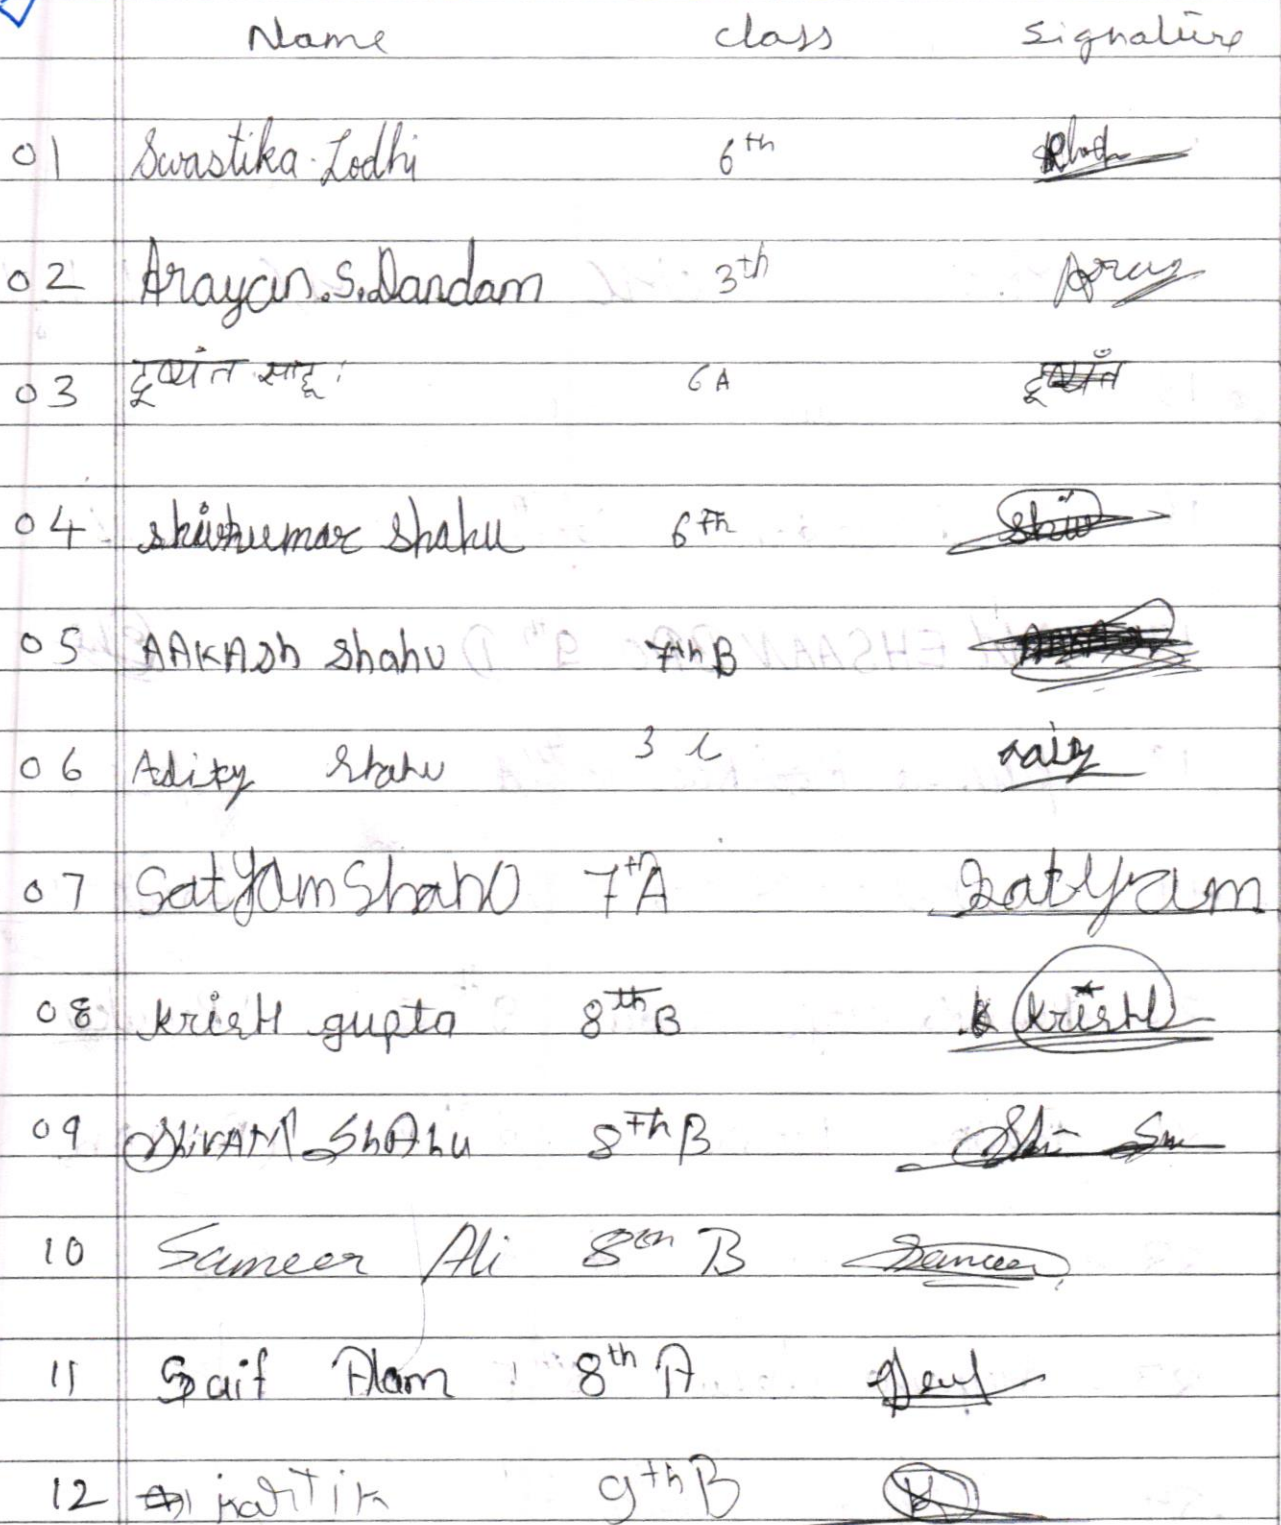 Name class Signature
01 Swastika Lodhi 6th
02 Arayan.S.Dandam 3th Aray
03 दुष्यंत साहू 6A दुष्यंत
04 shivkumar shahu 6Th Shiv
05 AAKASh Shahu 7th B
06 Adity Shahu 3 C
07 SatYam Shahu 7th A SatYam
08 KrisH gupta 8th B KrisH
09 ShivAM ShAhu 8Th B
10 Sameer Ali 8th B Sameer
11 Saif Alam 8th A
12 kartik 9th B K